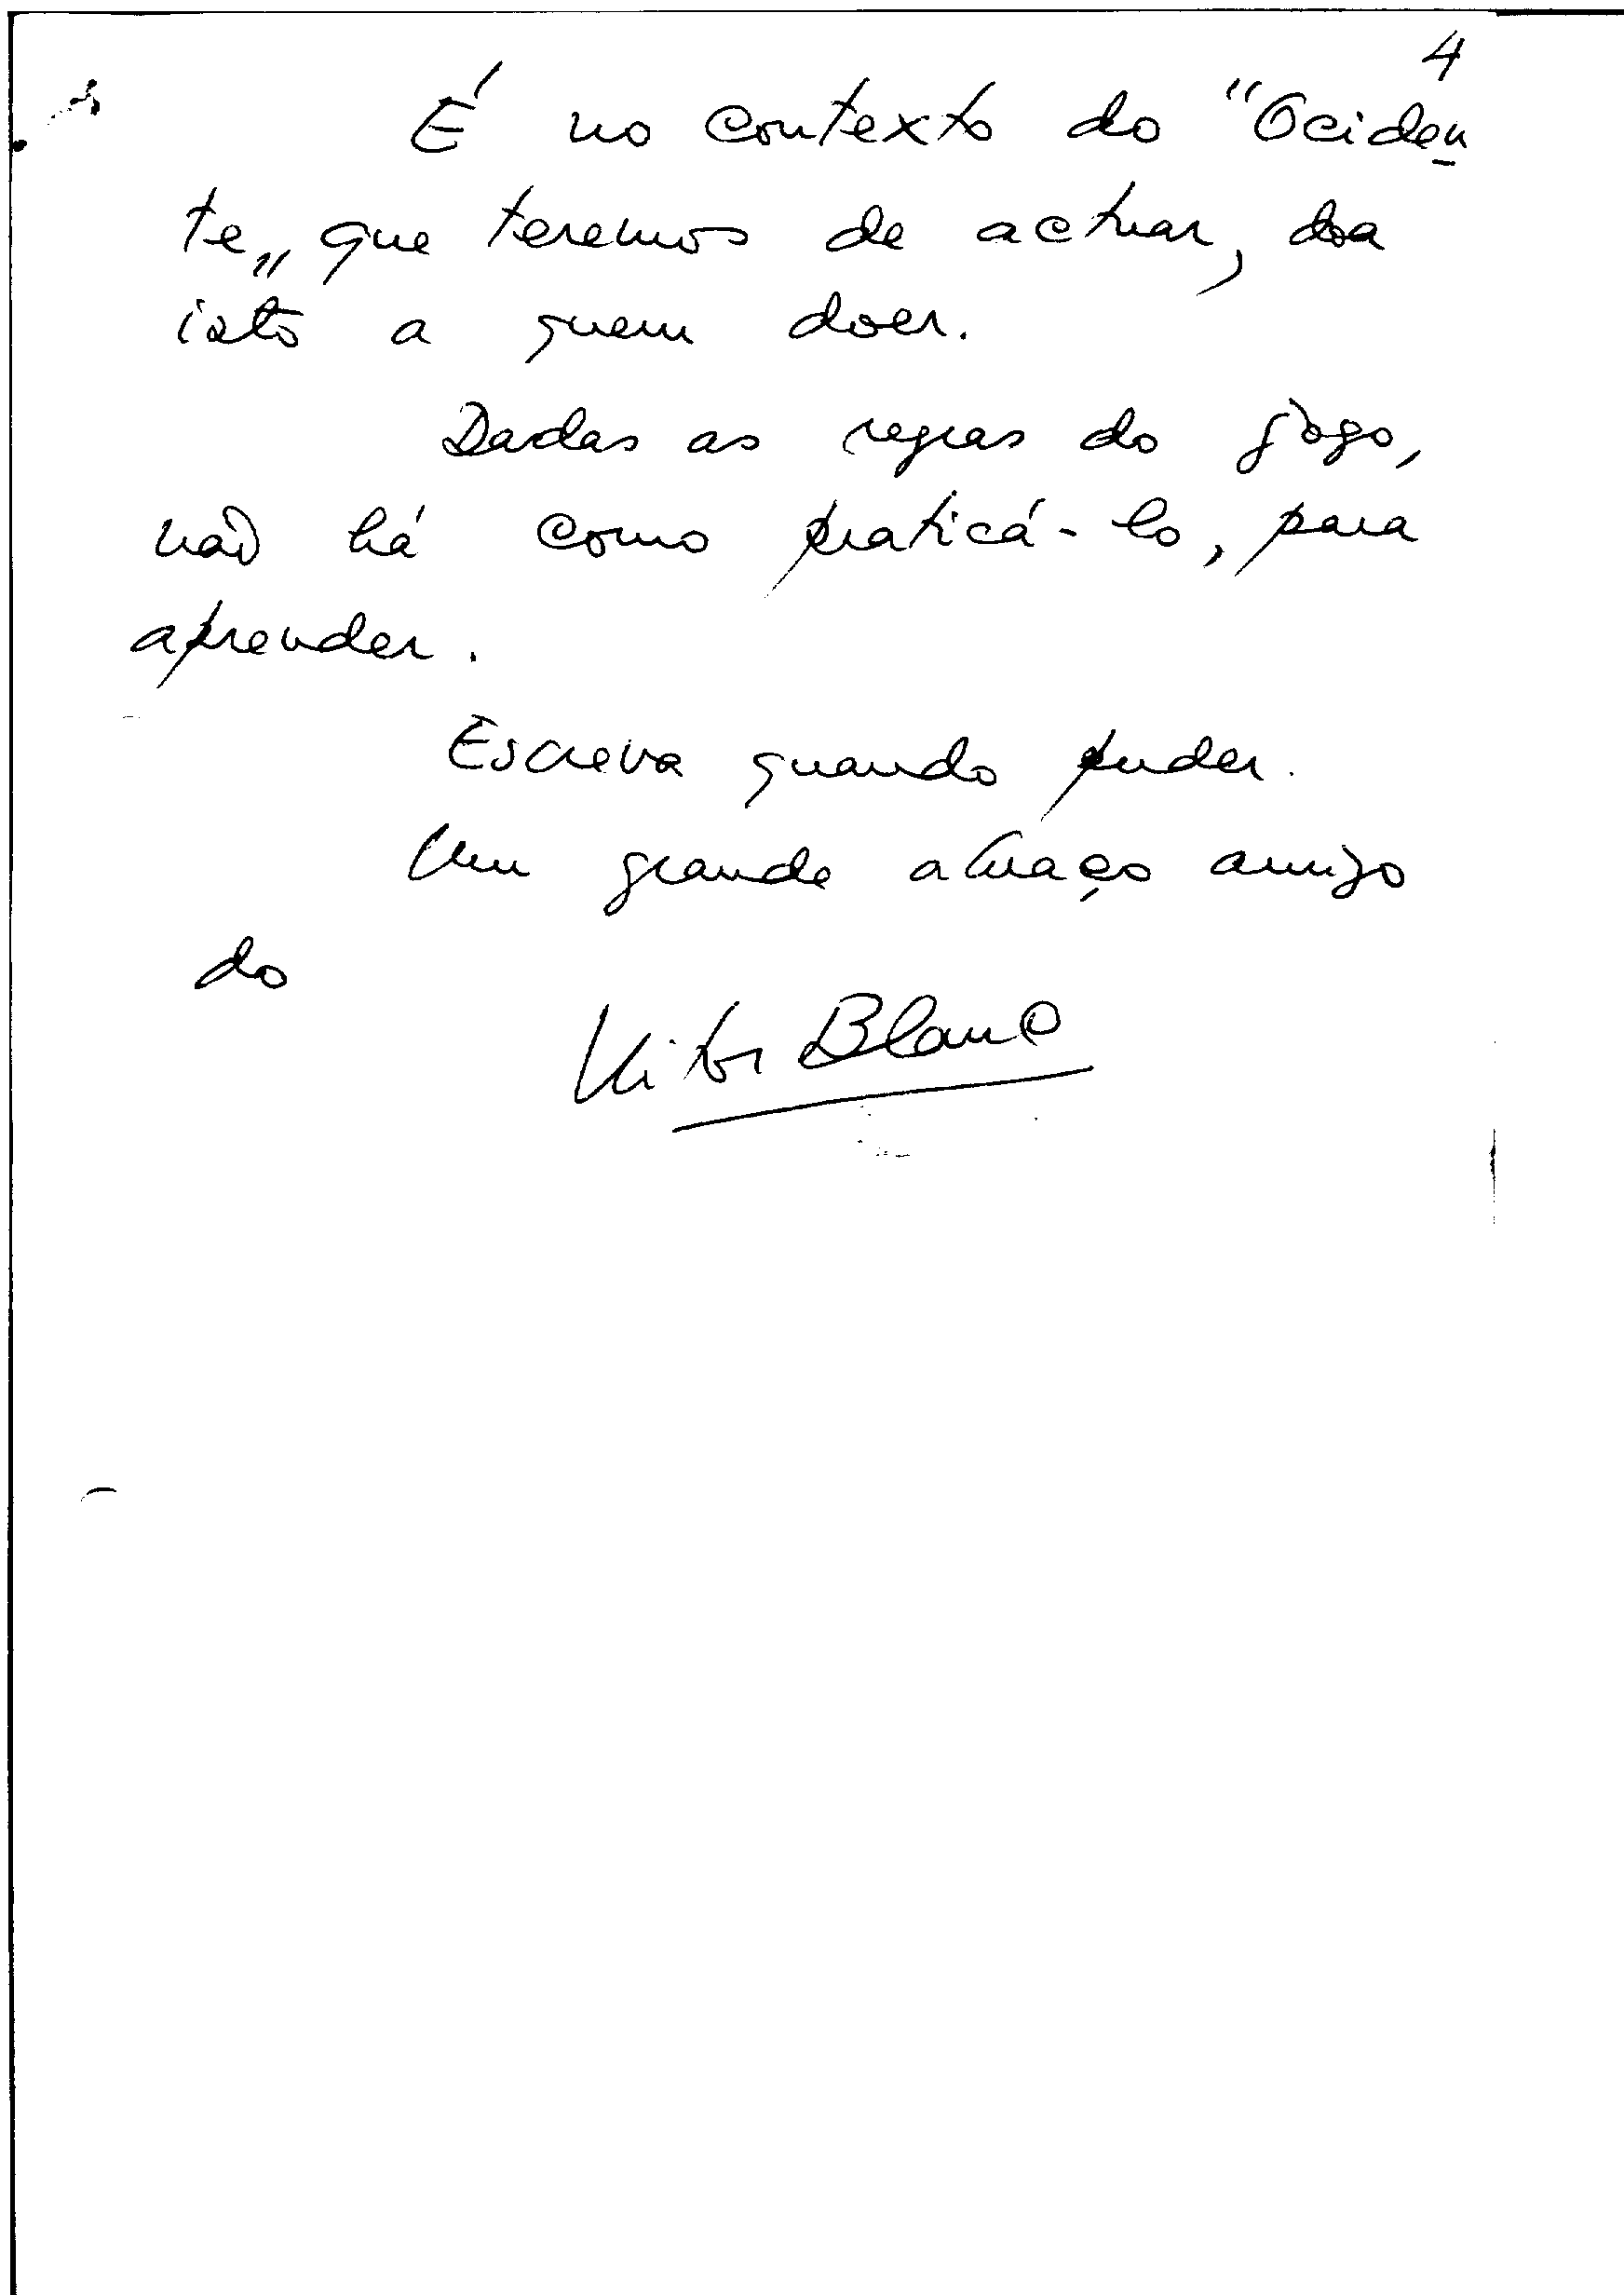 4
É no contexto do "Ociden
te„ que teremos de actuar, doa
isto a quem doer.
Dadas as regras do jôgo,
não há como praticá-lo, para
aprender.
Escreva quando puder.
Um grande abraço amigo
do
Vitor Blanc